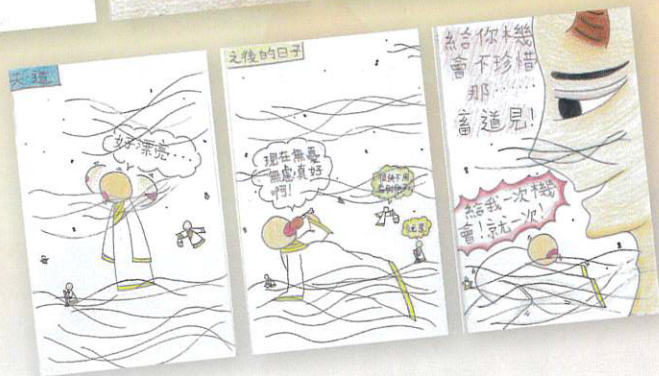 天道
好漂亮…
之後的日子
現在無憂
無慮,真好
啊!
就是
給你機
會不珍惜
那……
畜道見!
給我一次機
會!就一次!